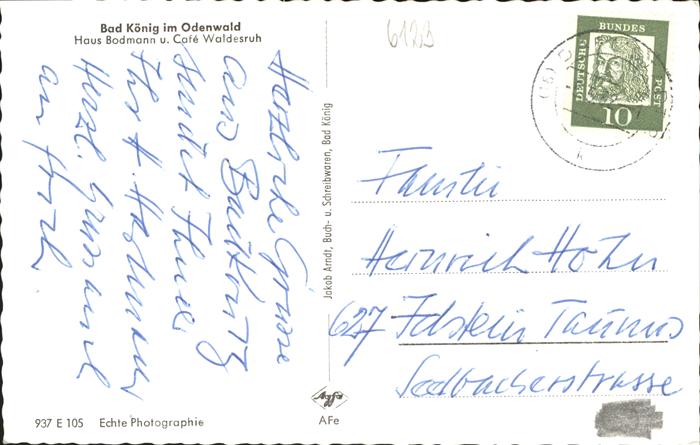 Bad König im Odenwald
Haus Bodmann u. Café Waldesruh
6123
DEUTSCHE
BUNDES
POST
10
Herzliche Grüsse
aus Bad König
sendet Ihnen
Ihr H. Hartmann
Herzl. Gruss auch
an Horst.
Jakob Arndt, Buch- u. Schreibwaren, Bad König
Familie
Heinrich Hohn
627 Idstein Taunus
Seelbacherstrasse
Agfa
937 E 105 Echte Photographie
AFe